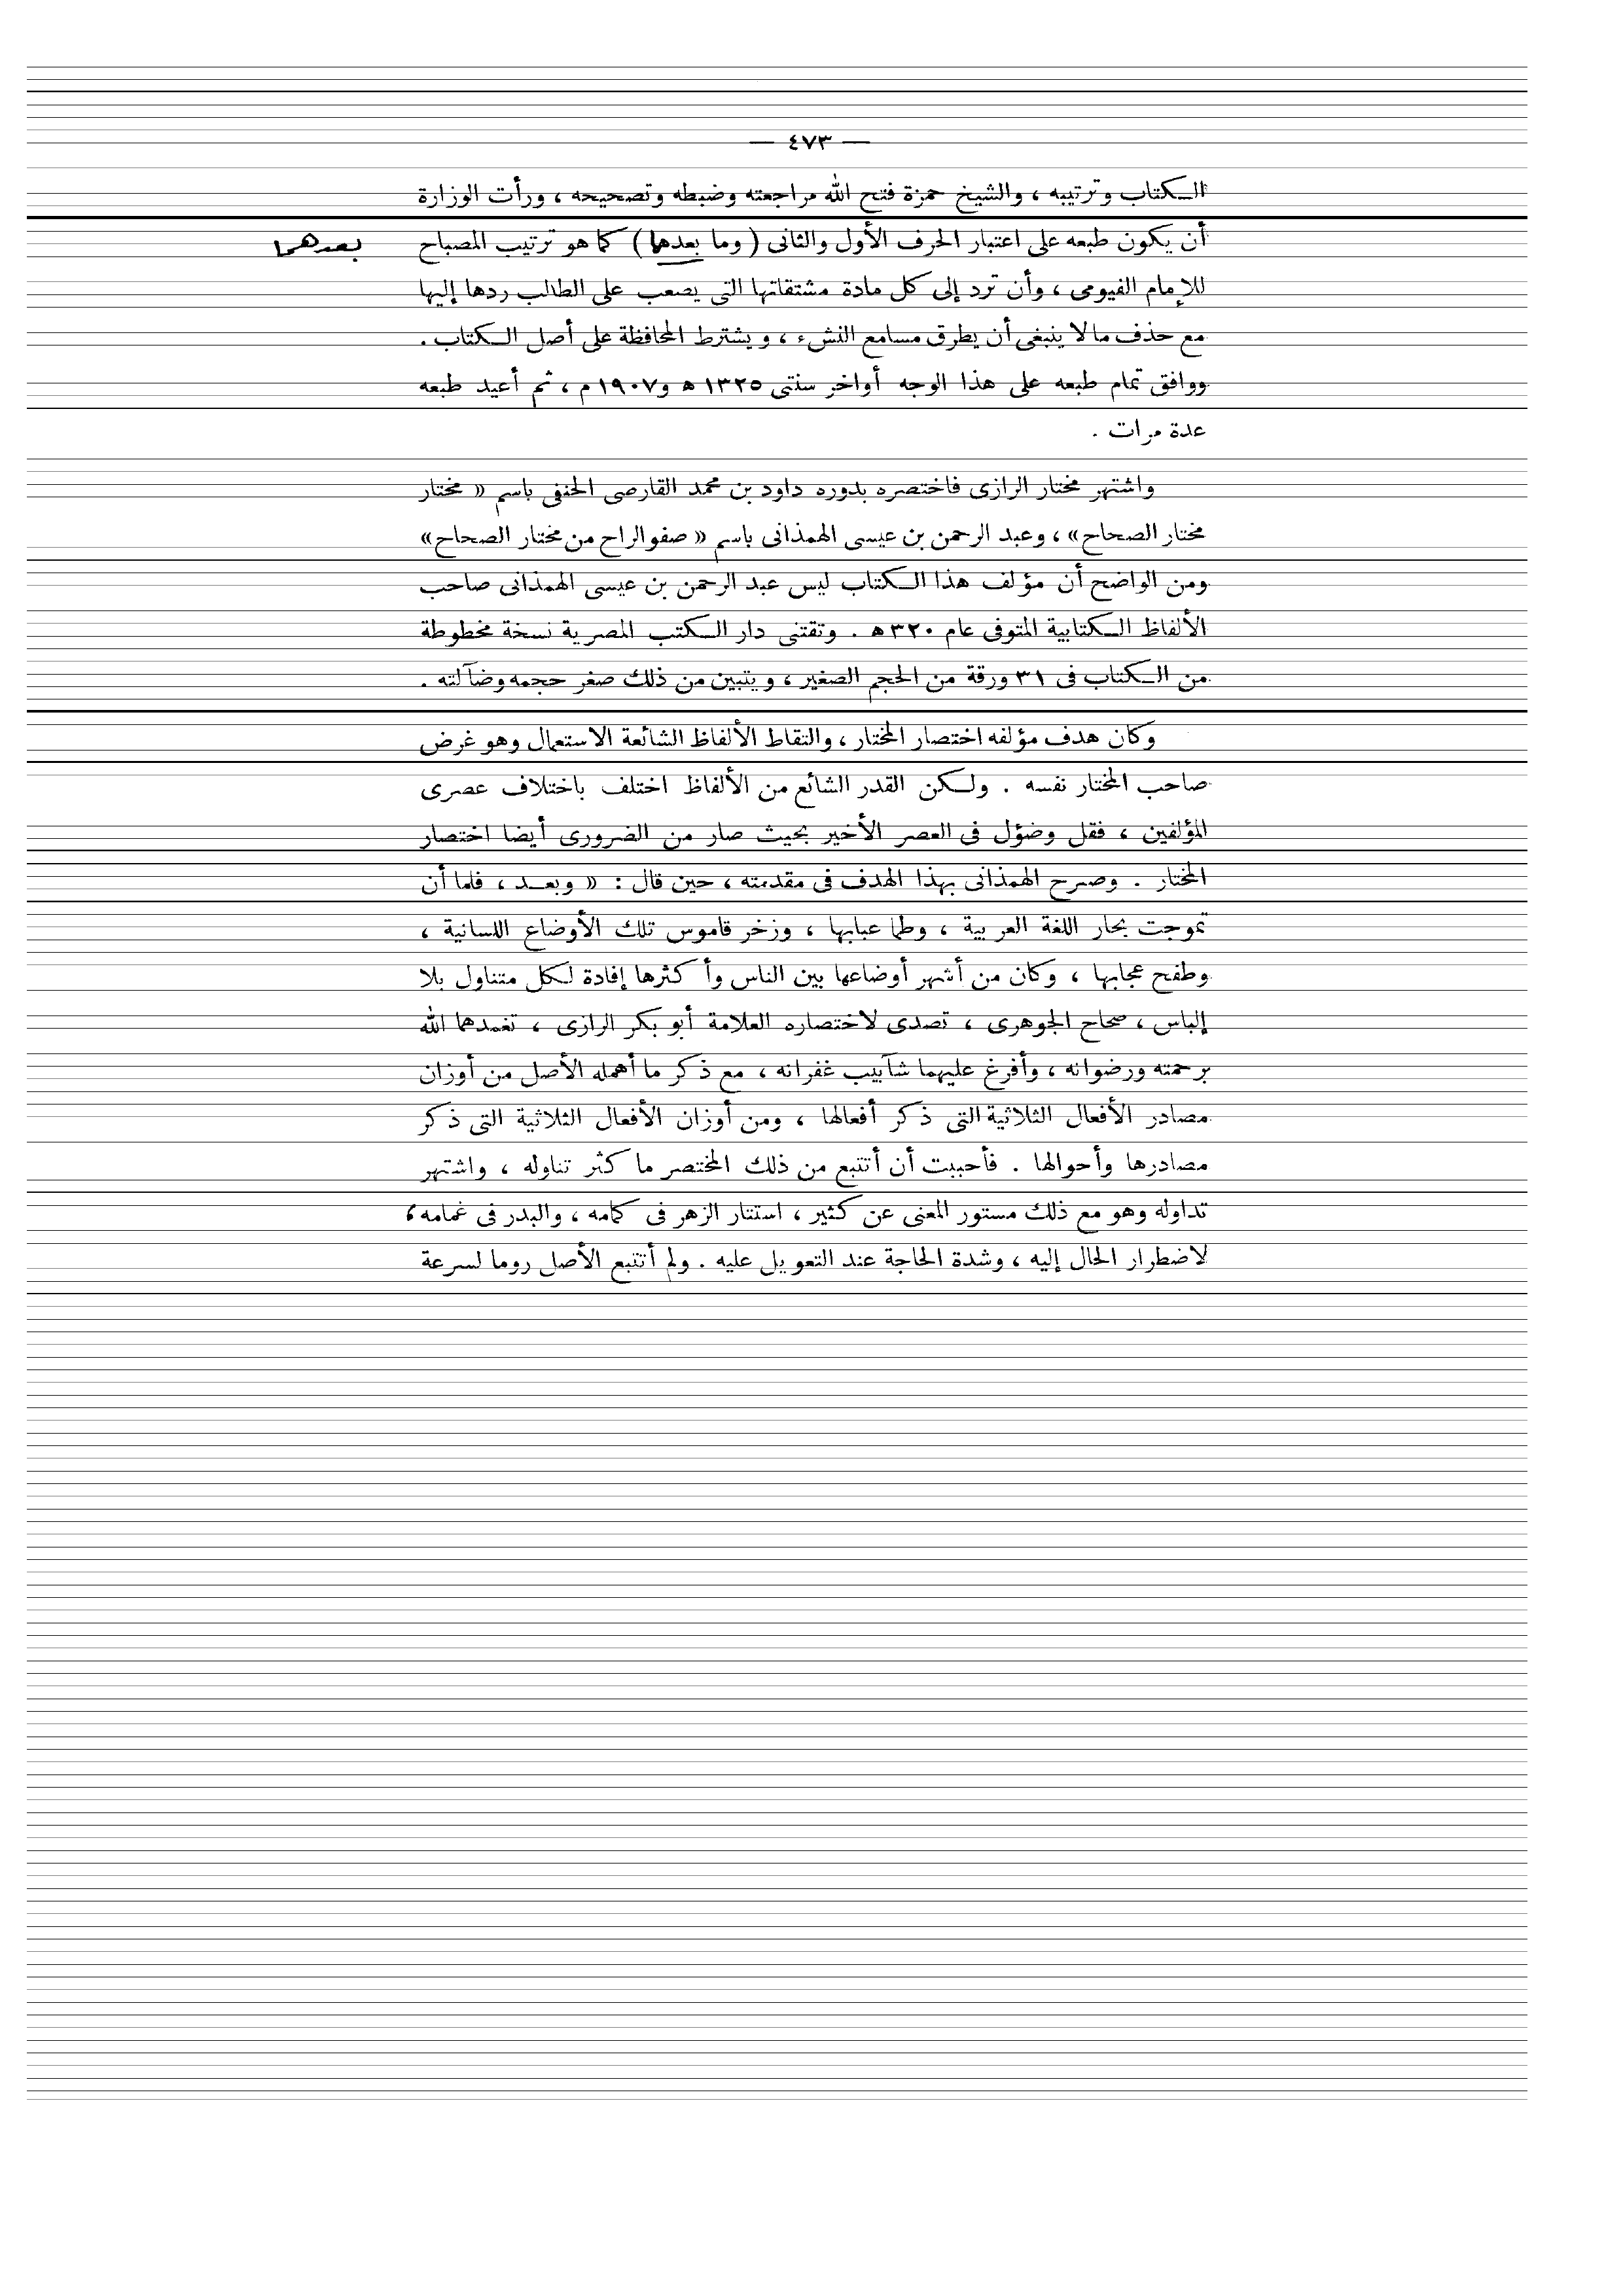 — ٤٧٣ —
الكتاب وترتيبه ، والشيخ حمزة فتح الله مراجعته وضبطه وتصحيحه ، ورأت الوزارة
أن يكون طبعه على اعتبار الحرف الأول والثانى ( وما بعدهما ) كما هو ترتيب المصباح
بعدهما
للإمام الفيومى ، وأن ترد إلى كل مادة مشتقاتها التى يصعب على الطالب ردها إليها
مع حذف مالا ينبغى أن يطرق مسامع النشء ، ويشترط المحافظة على أصل الكتاب .
ووافق تمام طبعه على هذا الوجه أواخر سنتى ١٣٢٥ ه و١٩٠٧ م ، ثم أعيد طبعه
عدة مرات .
واشتهر مختار الرازى فاختصره بدوره داود بن محمد القارصى الحنفى باسم « مختار
مختار الصحاح» ، وعبد الرحمن بن عيسى الهمذانى باسم « صفو الراح من مختار الصحاح»
ومن الواضح أن مؤلف هذا الكتاب ليس عبد الرحمن بن عيسى الهمذانى صاحب
الألفاظ الكتابية المتوفى عام ٣٢٠ه . وتقتنى دار الكتب المصرية نسخة مخطوطة
من الكتاب فى ٣١ ورقة من الحجم الصغير ، ويتبين من ذلك صغر حجمه وضآلته .
وكان هدف مؤلفه اختصار المختار ، والتقاط الألفاظ الشائعة الاستعمال وهو غرض
صاحب المختار نفسه . ولكن القدر الشائع من الألفاظ اختلف باختلاف عصرى
المؤلفين ، فقل وضؤل فى العصر الأخير بحيث صار من الضرورى أيضا اختصار
المختار . وصرح الهمذانى بهذا الهدف فى مقدمته ، حين قال : « وبعد ، فلما أن
تموجت بحار اللغة العربية ، وطما عبابها ، وزخر قاموس تلك الأوضاع اللسانية ،
وطفح عجابها ، وكان من أشهر أوضاعها بين الناس وأكثرها إفادة لكل متناول بلا
إلباس ، صحاح الجوهرى ، تصدى لاختصاره العلامة أبو بكر الرازى ، تغمدهما الله
برحمته ورضوانه ، وأفرغ عليهما شآبيب غفرانه ، مع ذكر ما أهمله الأصل من أوزان
مصادر الأفعال الثلاثية التى ذكر أفعالها ، ومن أوزان الأفعال الثلاثية التى ذكر
مصادرها وأحوالها . فأحببت أن أتتبع من ذلك المختصر ما كثر تناوله ، واشتهر
تداوله وهو مع ذلك مستور المعنى عن كثير ، استتار الزهر فى كمامه ، والبدر فى غمامه ،
لاضطرار الحال إليه ، وشدة الحاجة عند التعويل عليه . ولم أتتبع الأصل روما لسرعة